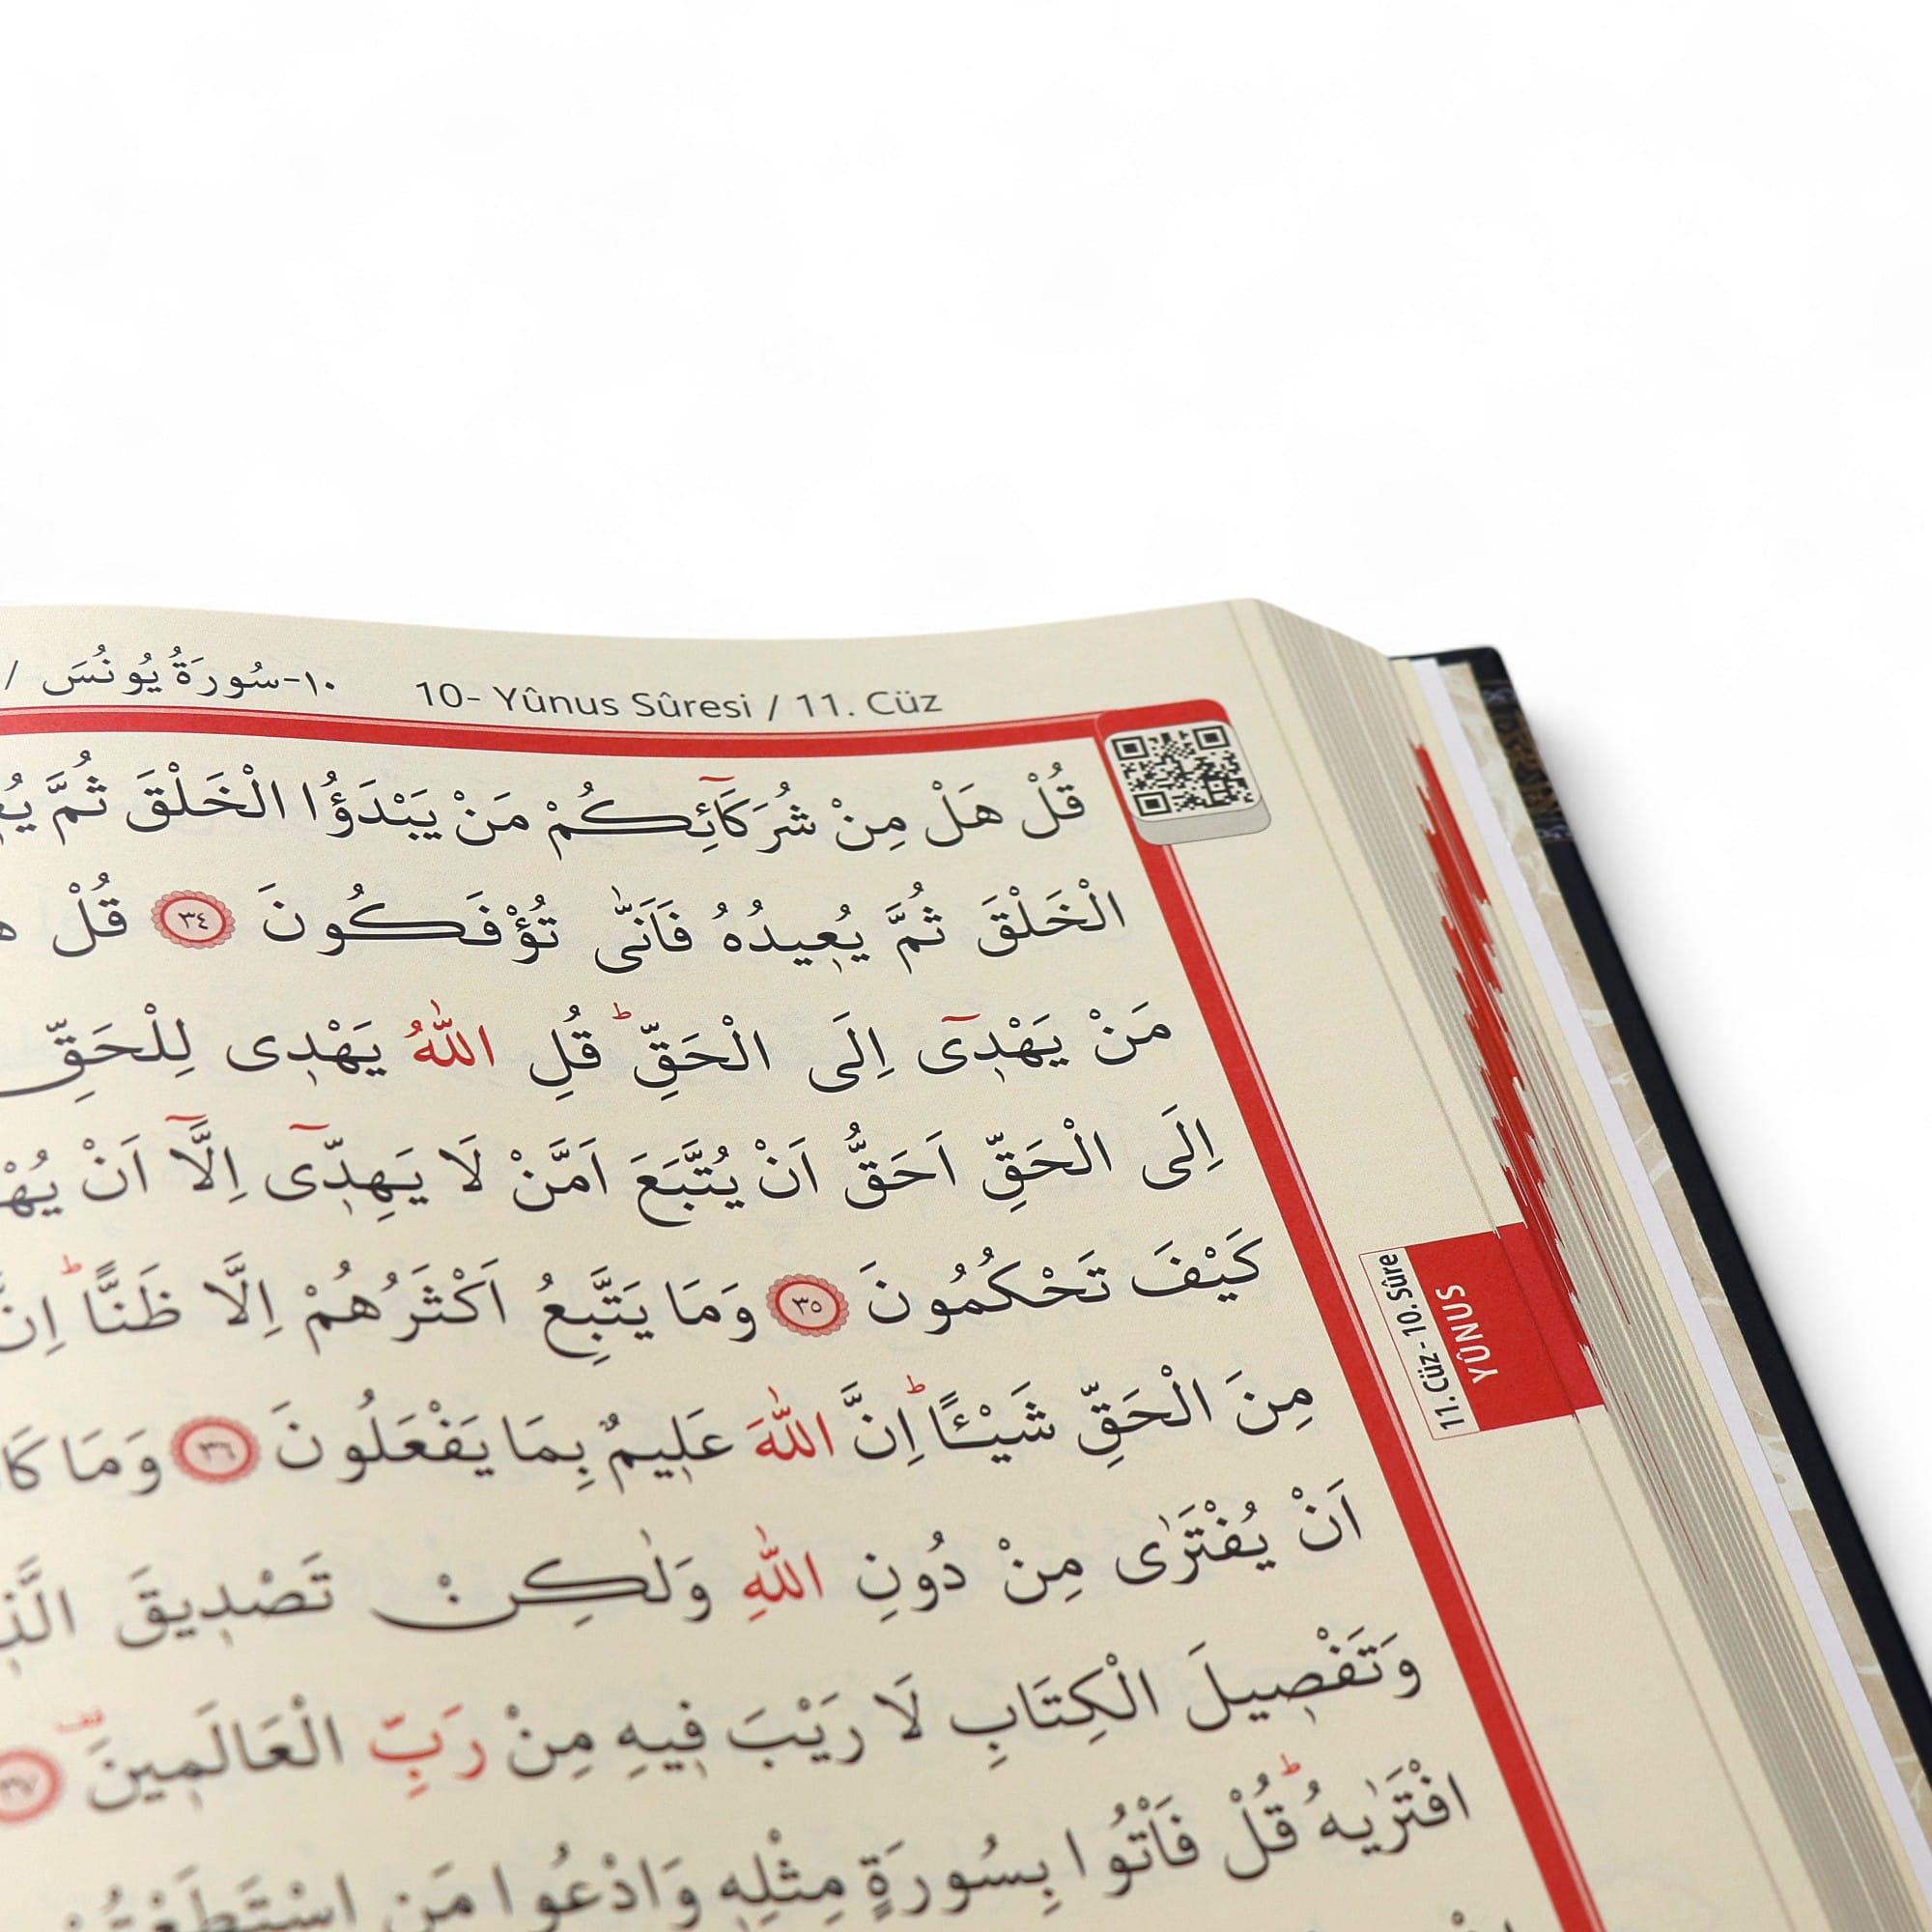 ١٠-سُورَةُ يُونُسَ /
10- Yûnus Sûresi / 11. Cüz
قُلْ هَلْ مِنْ شُرَكَٓائِكُمْ مَنْ يَبْدَؤُا الْخَلْقَ ثُمَّ
الْخَلْقَ ثُمَّ يُع۪يدُهُ فَاَنّٰى تُؤْفَكُونَ ﴿٣٤﴾ قُلْ
مَنْ يَهْد۪ٓي اِلَى الْحَقِّۜ قُلِ اللّٰهُ يَهْد۪ي لِلْحَقِّ
اِلَى الْحَقِّ اَحَقُّ اَنْ يُتَّبَعَ اَمَّنْ لَا يَهِدّ۪ٓي اِلَّٓا اَنْ
كَيْفَ تَحْكُمُونَ ﴿٣٥﴾ وَمَا يَتَّبِعُ اَكْثَرُهُمْ اِلَّا ظَنًّاۜ
مِنَ الْحَقِّ شَيْـًٔاۜ اِنَّ اللّٰهَ عَل۪يمٌ بِمَا يَفْعَلُونَ ﴿٣٦﴾ وَمَا
اَنْ يُفْتَرٰى مِنْ دُونِ اللّٰهِ وَلٰكِنْ تَصْد۪يقَ
وَتَفْص۪يلَ الْكِتَابِ لَا رَيْبَ ف۪يهِ مِنْ رَبِّ الْعَالَم۪ينَ ﴿٣٧﴾
افْتَرٰيهُۜ قُلْ فَأْتُوا بِسُورَةٍ مِثْلِه۪ وَادْعُوا مَنِ
11. Cüz - 10. Sûre
YÛNUS